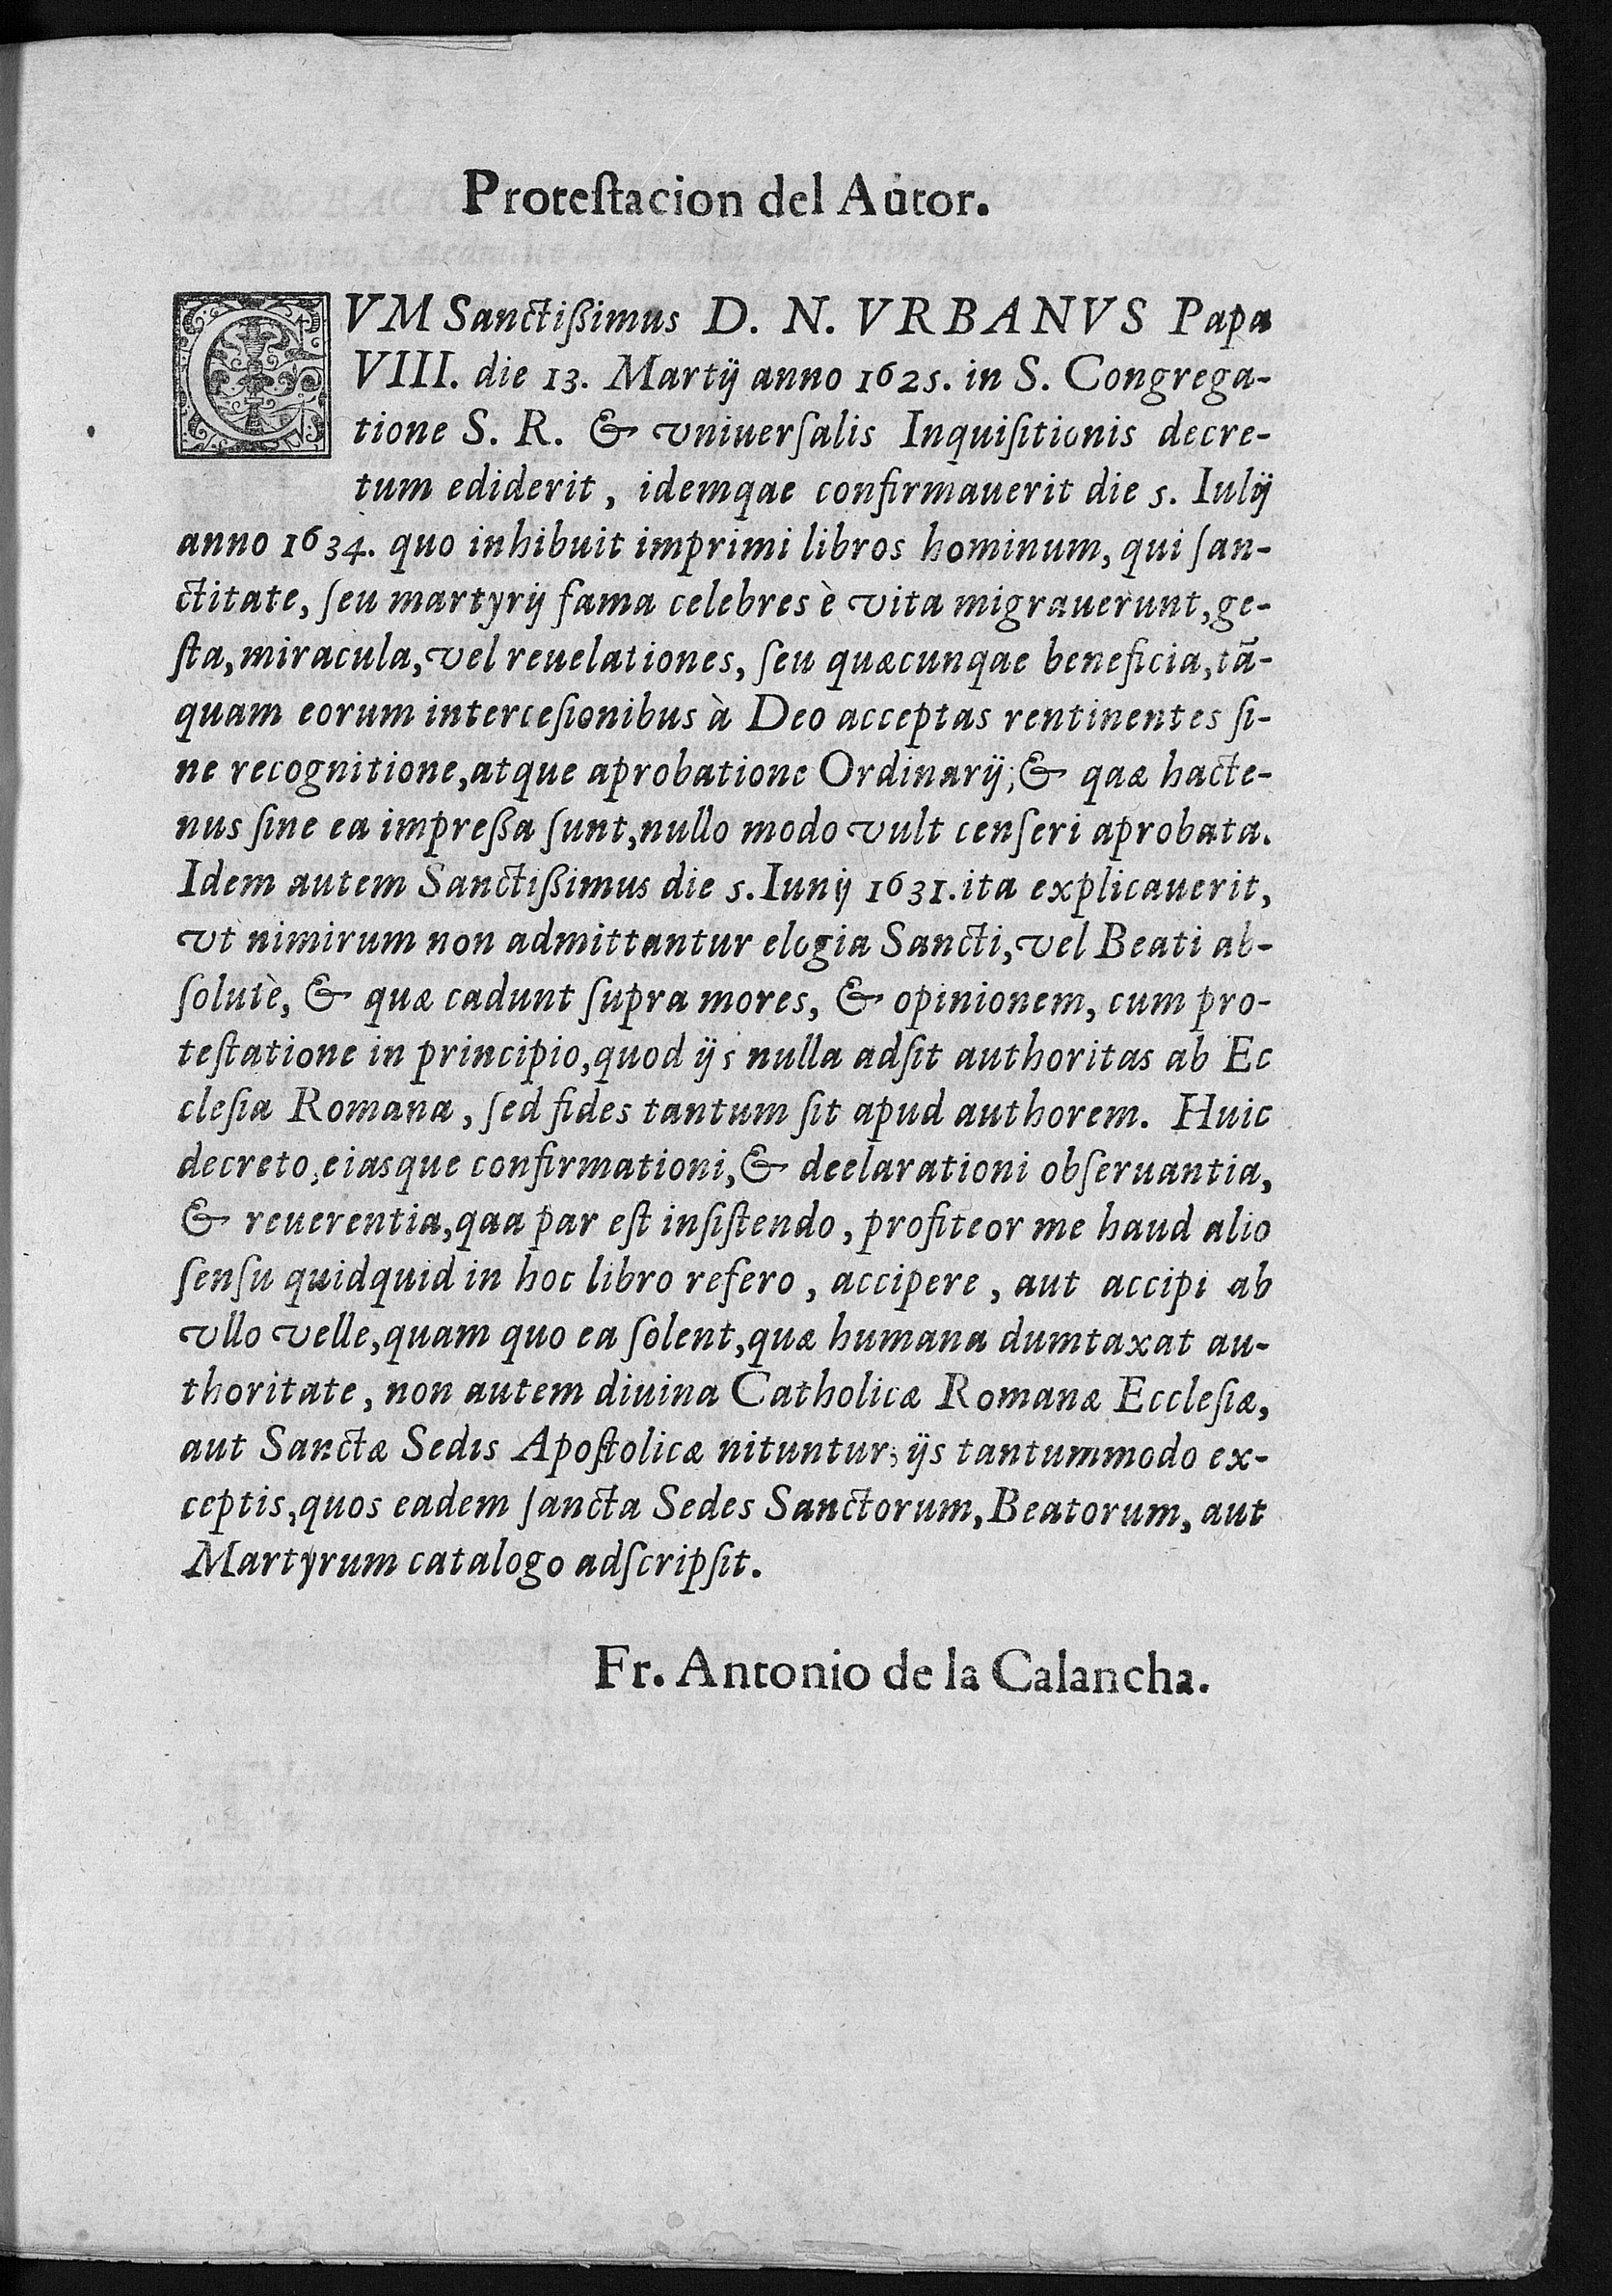 Proteſtacion del Aútor.
CVM Sanctißimus D. N. VRBANVS Papa
VIII. die 13. Martij anno 1625. in S. Congrega-
tione S. R. & vniuerſalis Inquiſitionis decre-
tum ediderit, idemqae confirmauerit die 5. Iulij
anno 1634. quo inhibuit imprimi libros hominum, qui ſan-
ctitate, ſeu martyrij fama celebres è vita migrauerunt, ge-
ſta, miracula, vel reuelationes, ſeu quæcunqae beneficia, tã-
quam eorum interceſionibus à Deo acceptas rentinentes ſi-
ne recognitione, atque aprobatione Ordinarij; & qaæ hacte-
nus ſine ea impreßa ſunt, nullo modo vult cenſeri aprobata.
Idem autem Sanctißimus die 5. Iunij 1631. ita explicauerit,
vt nimirum non admittantur elogia Sancti, vel Beati ab-
ſolutè, & quæ cadunt ſupra mores, & opinionem, cum pro-
teſtatione in principio, quod ijs nulla adſit authoritas ab Ec
cleſia Romana, ſed fides tantum ſit apud authorem. Huic
decreto, eiasque confirmationi, & deelarationi obſeruantia,
& reuerentia, qaa par eſt inſiſtendo, profiteor me haud alio
ſenſu quidquid in hoc libro refero, accipere, aut accipi ab
vllo velle, quam quo ea ſolent, quæ humana dumtaxat au-
thoritate, non autem diuina Catholicæ Romanæ Eccleſiæ,
aut Sanctæ Sedis Apoſtolicæ nituntur; ijs tantummodo ex-
ceptis, quos eadem ſancta Sedes Sanctorum, Beatorum, aut
Martyrum catalogo adſcripſit.
Fr. Antonio de la Calancha.